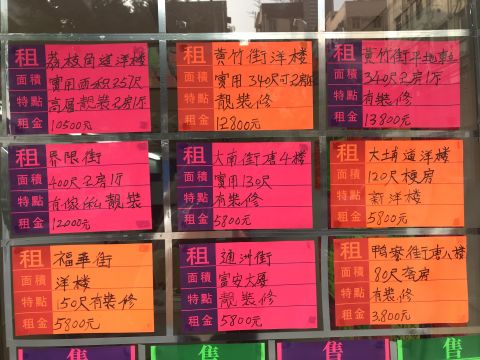 租 荔枝角道洋楼
面積 實用面积257尺
特點 高層靚裝2房1厅
租金 10500元
租 黃竹街洋楼
面積 實用340尺可2房
特點 靚裝修
租金 12800元
租 黃竹街平地車立
面積 340尺2房1厅
特點 有裝修
租金 13800元
租 界限街
面積 400尺2房1厅
特點 有傢俬靚裝
租金 12000元
租 大南街唐4楼
面積 實用130尺
特點 有裝修
租金 5800元
租 大埔道洋楼
面積 120尺梗房
特點 新洋楼
租金 5800元
租 福華街
面積 洋楼
特點 150尺有裝修
租金 5800元
租 通洲街
面積 富安大厦
特點 靚裝修
租金 5800元
租 鴨寮街唐八楼
面積 80尺套房
特點 有裝修
租金 3,800元
售
售
售
售